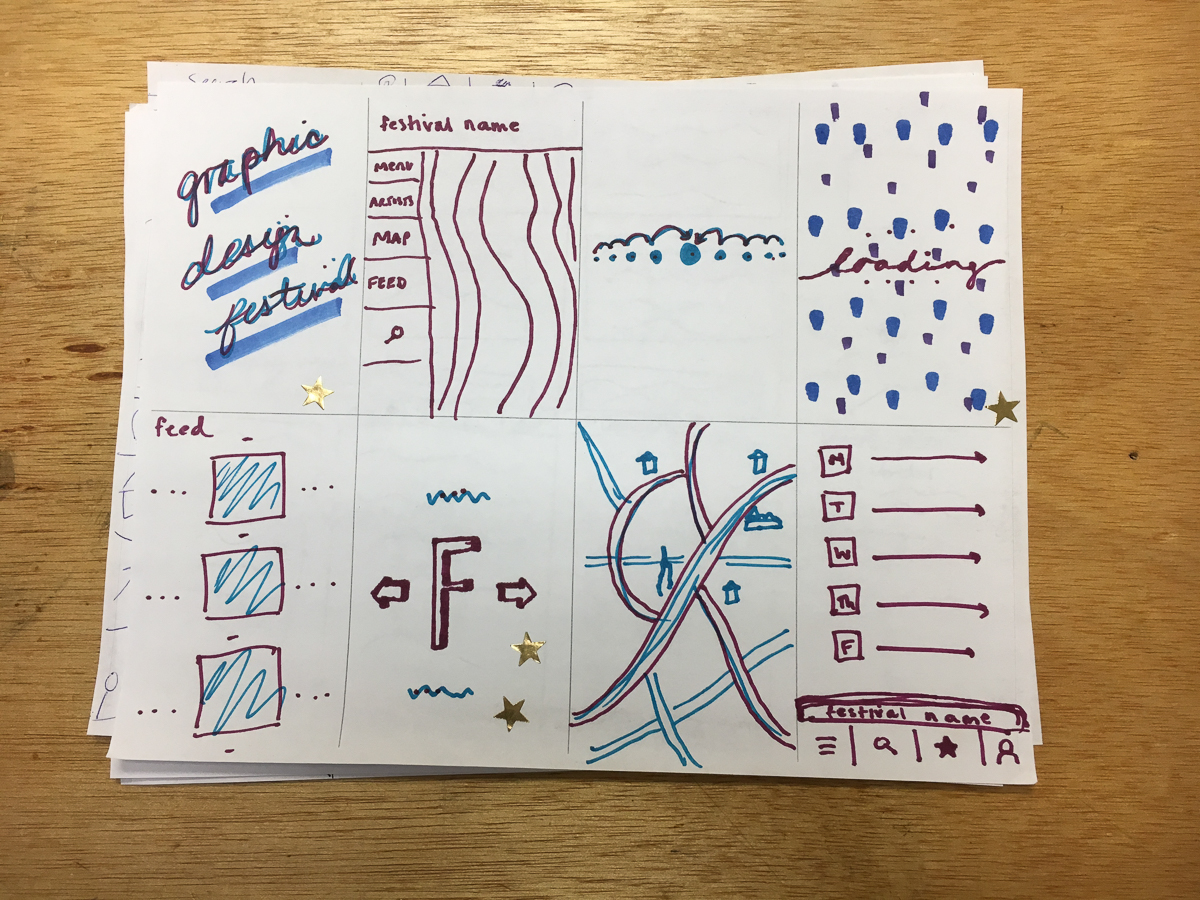 Search
graphic
design
festival
festival name
MENU
ARTISTS
MAP
FEED
loading
feed
F
M
T
W
Th
F
festival name